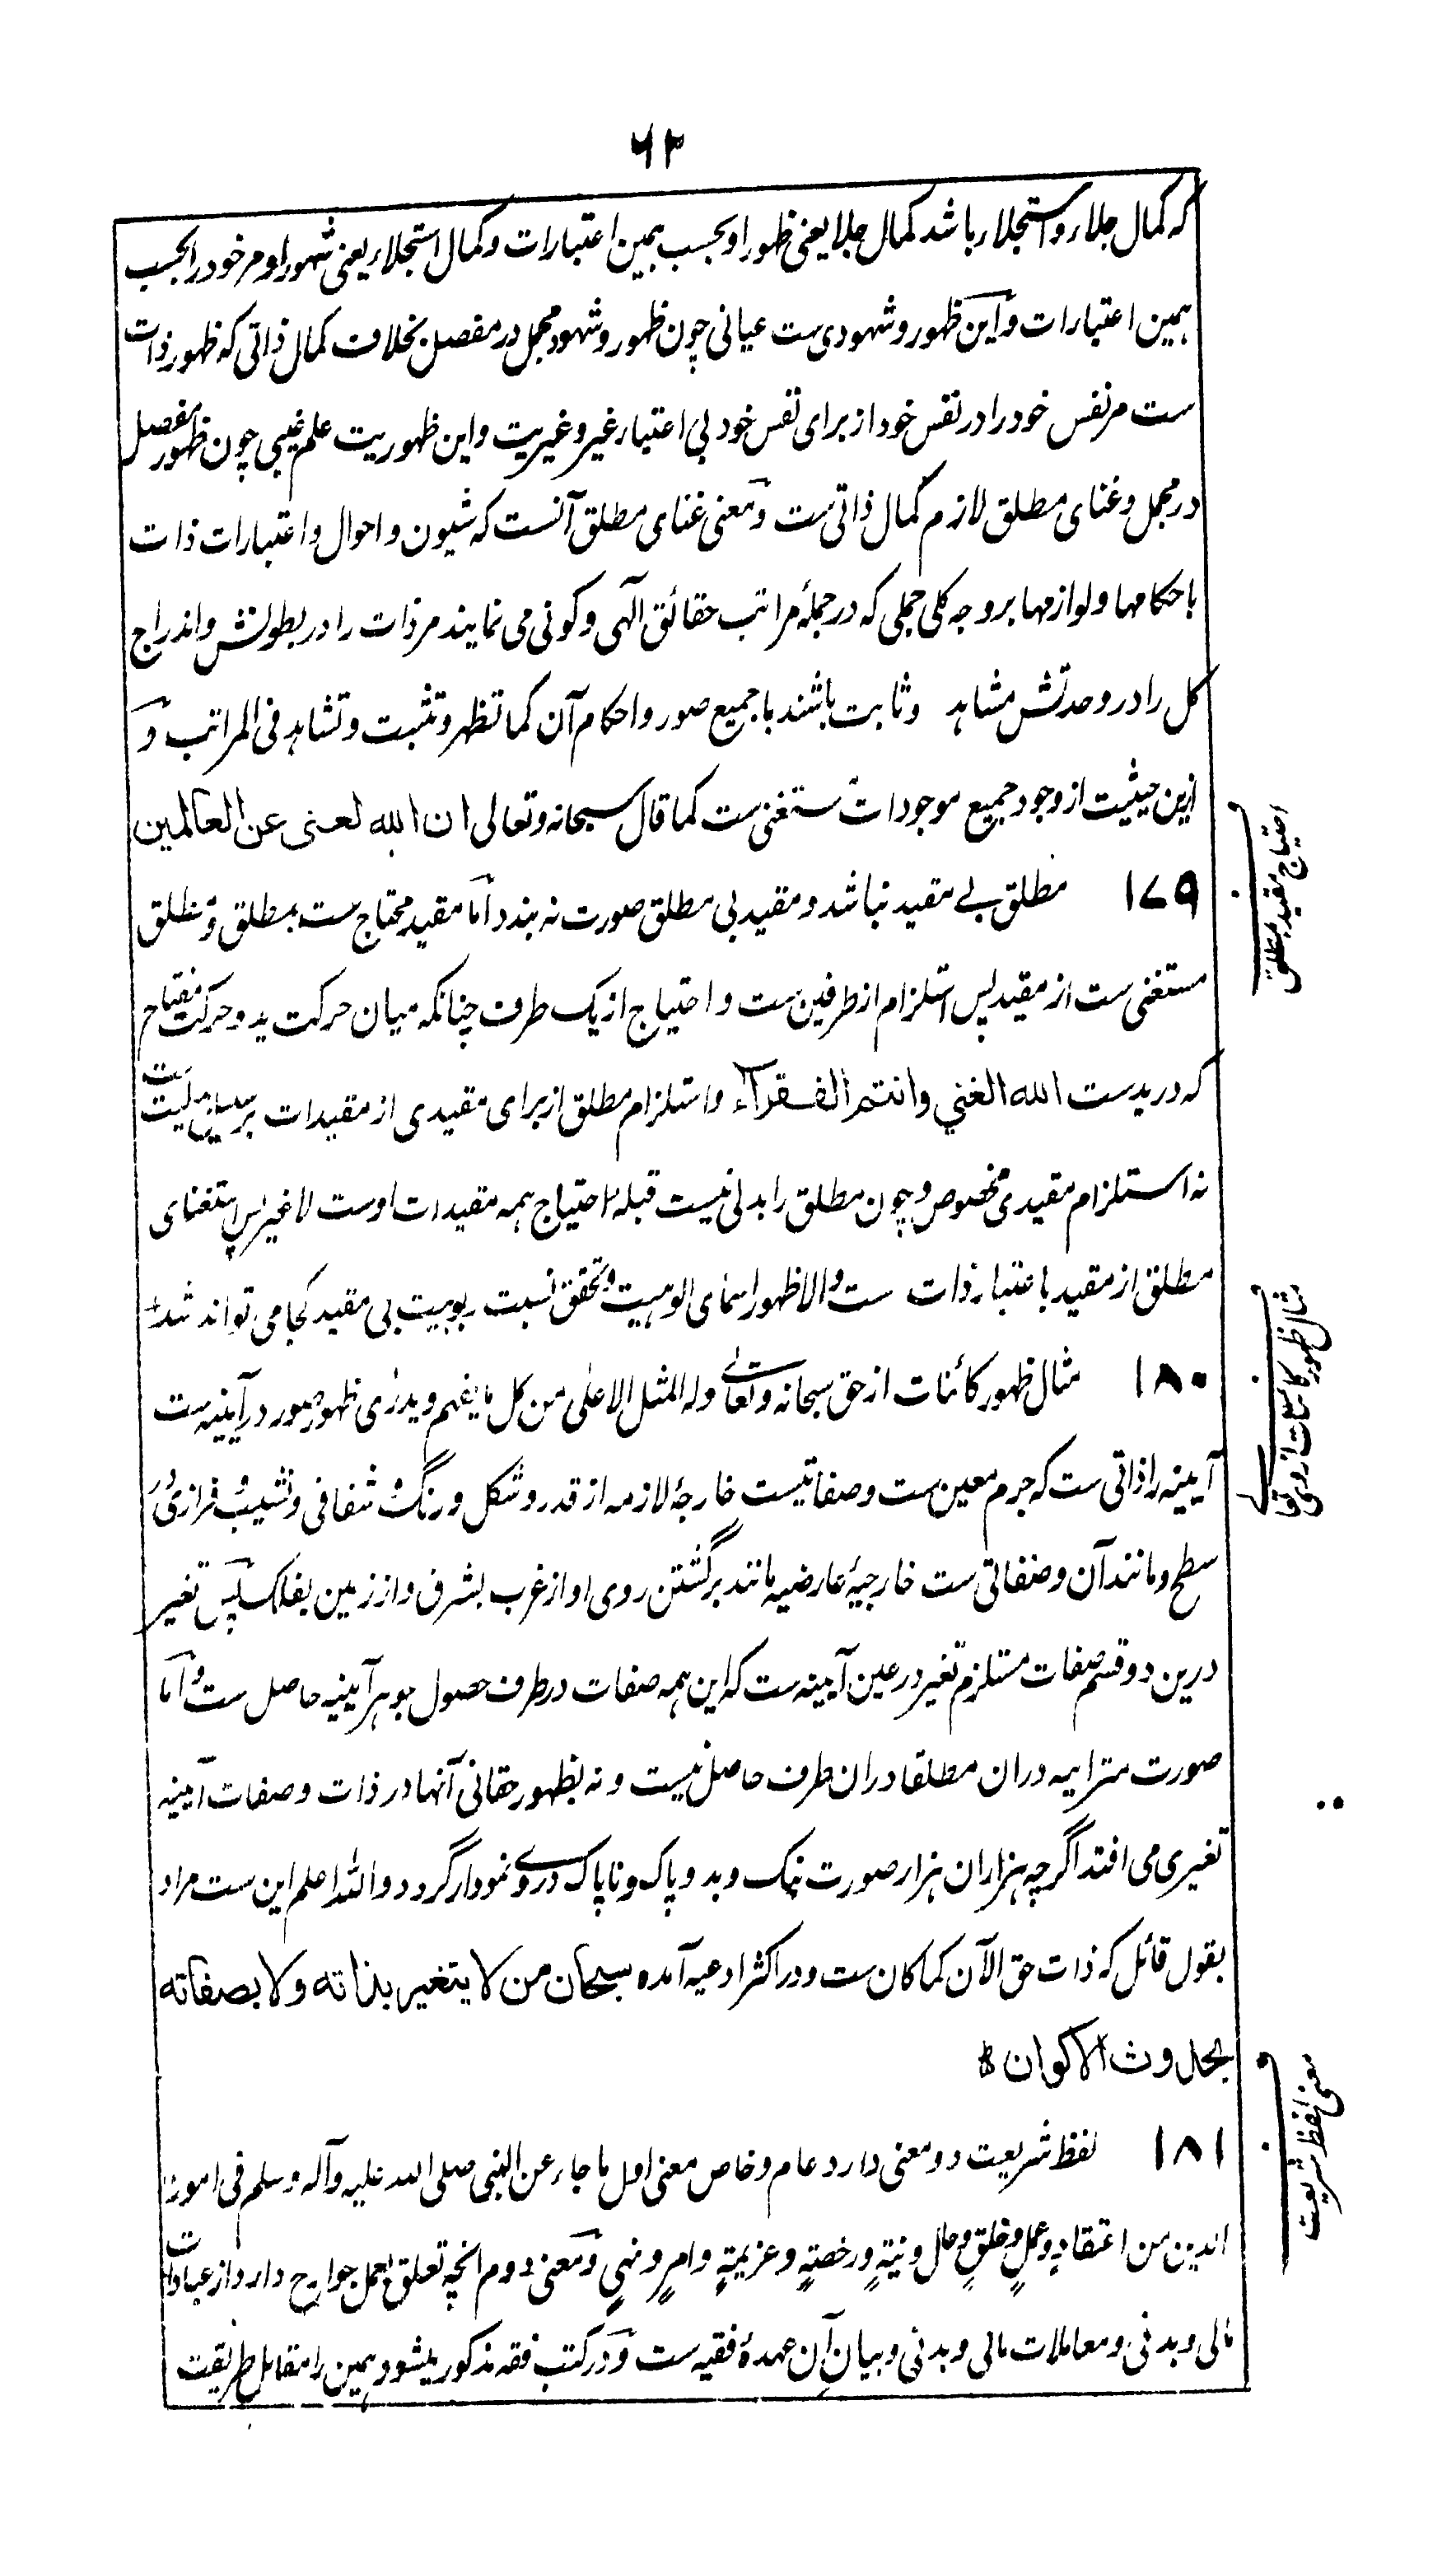 ۶۲
که کمال جلاء و استجلاء باشد کمال جلا یعنی ظهور او بحسب همین اعتبارات و کمال استجلاء یعنی شهود او مر خود را بحسب
همین اعتبارات و این ظهور و شهودی ست عیانی چون ظهور و شهود مجمل در مفصل بخلاف کمال ذاتی که ظهور ذات
ست مر نفس خود را در نفس خود از برای نفس خود بی اعتبار غیر و غیریت و این ظهوریت علم غیبی چون ظهور مفصل
در مجمل و غنای مطلق لازم کمال ذاتی ست و معنی غنای مطلق آنست که شیون و احوال و اعتبارات ذات
باحکامها و لوازمها بر وجه کلی جملی که در جملهٔ مراتب حقائق الٰهی و کونی می نمایند مر ذات را در بطونش و اندراج
کل را در وحدتش مشاهد و ثابت باشند با جمیع صور و احکام آن کما تظهر و تثبت و تشاهد فی المراتب و
ازین حیثیت از وجود جمیع موجودات مستغنی ست کما قال سبحانه و تعالی ان الله لغنی عن العالمین
۱۷۹ مطلق بے مقید نباشد و مقید بی مطلق صورت نه بندد اما مقید محتاج ست بمطلق و مطلق
مستغنی ست از مقید پس استلزام از طرفین ست و احتیاج از یک طرف چنانکه میان حرکت ید و حرکت مفتاح
که در ید ست الله الغني وانتم الفقراء و استلزام مطلق از برای مقیدی از مقیدات بر سبیل بدلیت ست
نه استلزام مقیدی مخصوص و چون مطلق را بدلی نیست قبلهٔ احتیاج همه مقیدات اوست لا غیر پس استغنای
مطلق از مقید باعتبار ذات ست و الا ظهور اسمای الوهیت و تحقق نسبت ربوبیت بی مقید کجا می تواند شد
۱۸۰ مثال ظهور کائنات از حق سبحانه و تعالے وله المثل الاعلی من کل ما یفهم و یدری ظهور صور در آیینه ست
آیینه را ذاتی ست که جرم معین ست و صفاتیست خارجهٔ لازمه از قدر و شکل و رنگ و شفافی و نشیب و فرازی
سطح و مانند آن و صفاتی ست خارجیهٔ عارضیه مانند برگشتن روی او از غرب بشرق و از زمین بفلک پس تغیر
درین دو قسم صفات مستلزم تغیر در عین آیینه ست که این همه صفات در طرف حصول جوهر آیینه حاصل ست و اما
صورت مترائیه دران مطلقا دران طرف حاصل نیست و نه بظهور حقانی آنها در ذات و صفات آیینه
تغیری می افتد اگرچه هزاران هزار صورت نیک و بد و پاک و ناپاک در وے نمودار گردد و الله اعلم این ست مراد
بقول قائل که ذات حق الآن کما کان ست و در اکثر ادعیه آمده سبحان من لا یتغیر بذاته و لا بصفاته
بحدوث الاکوان
۱۸۱ لفظ شریعت دو معنی دارد عام و خاص معنی اول ما جاء عن النبی صلی الله علیه و آله و سلم فی امور
الدین من اعتقادٍ و عملٍ و خلقٍ و حال و نیةٍ و رخصةٍ و عزیمةٍ و امرٍ و نهیٍ و معنی دوم انچه تعلق بعمل جوارح دارد از عبادات
مالی و بدنی و معاملات مالی و بدنی و بیان آن عهدهٔ فقیه ست و در کتب فقه مذکور میشود و همین را مقابل طریقت
احتیاج مقید بمطلق
مثال ظهور کائنات از وی تعالے
معنی لفظ شریعت